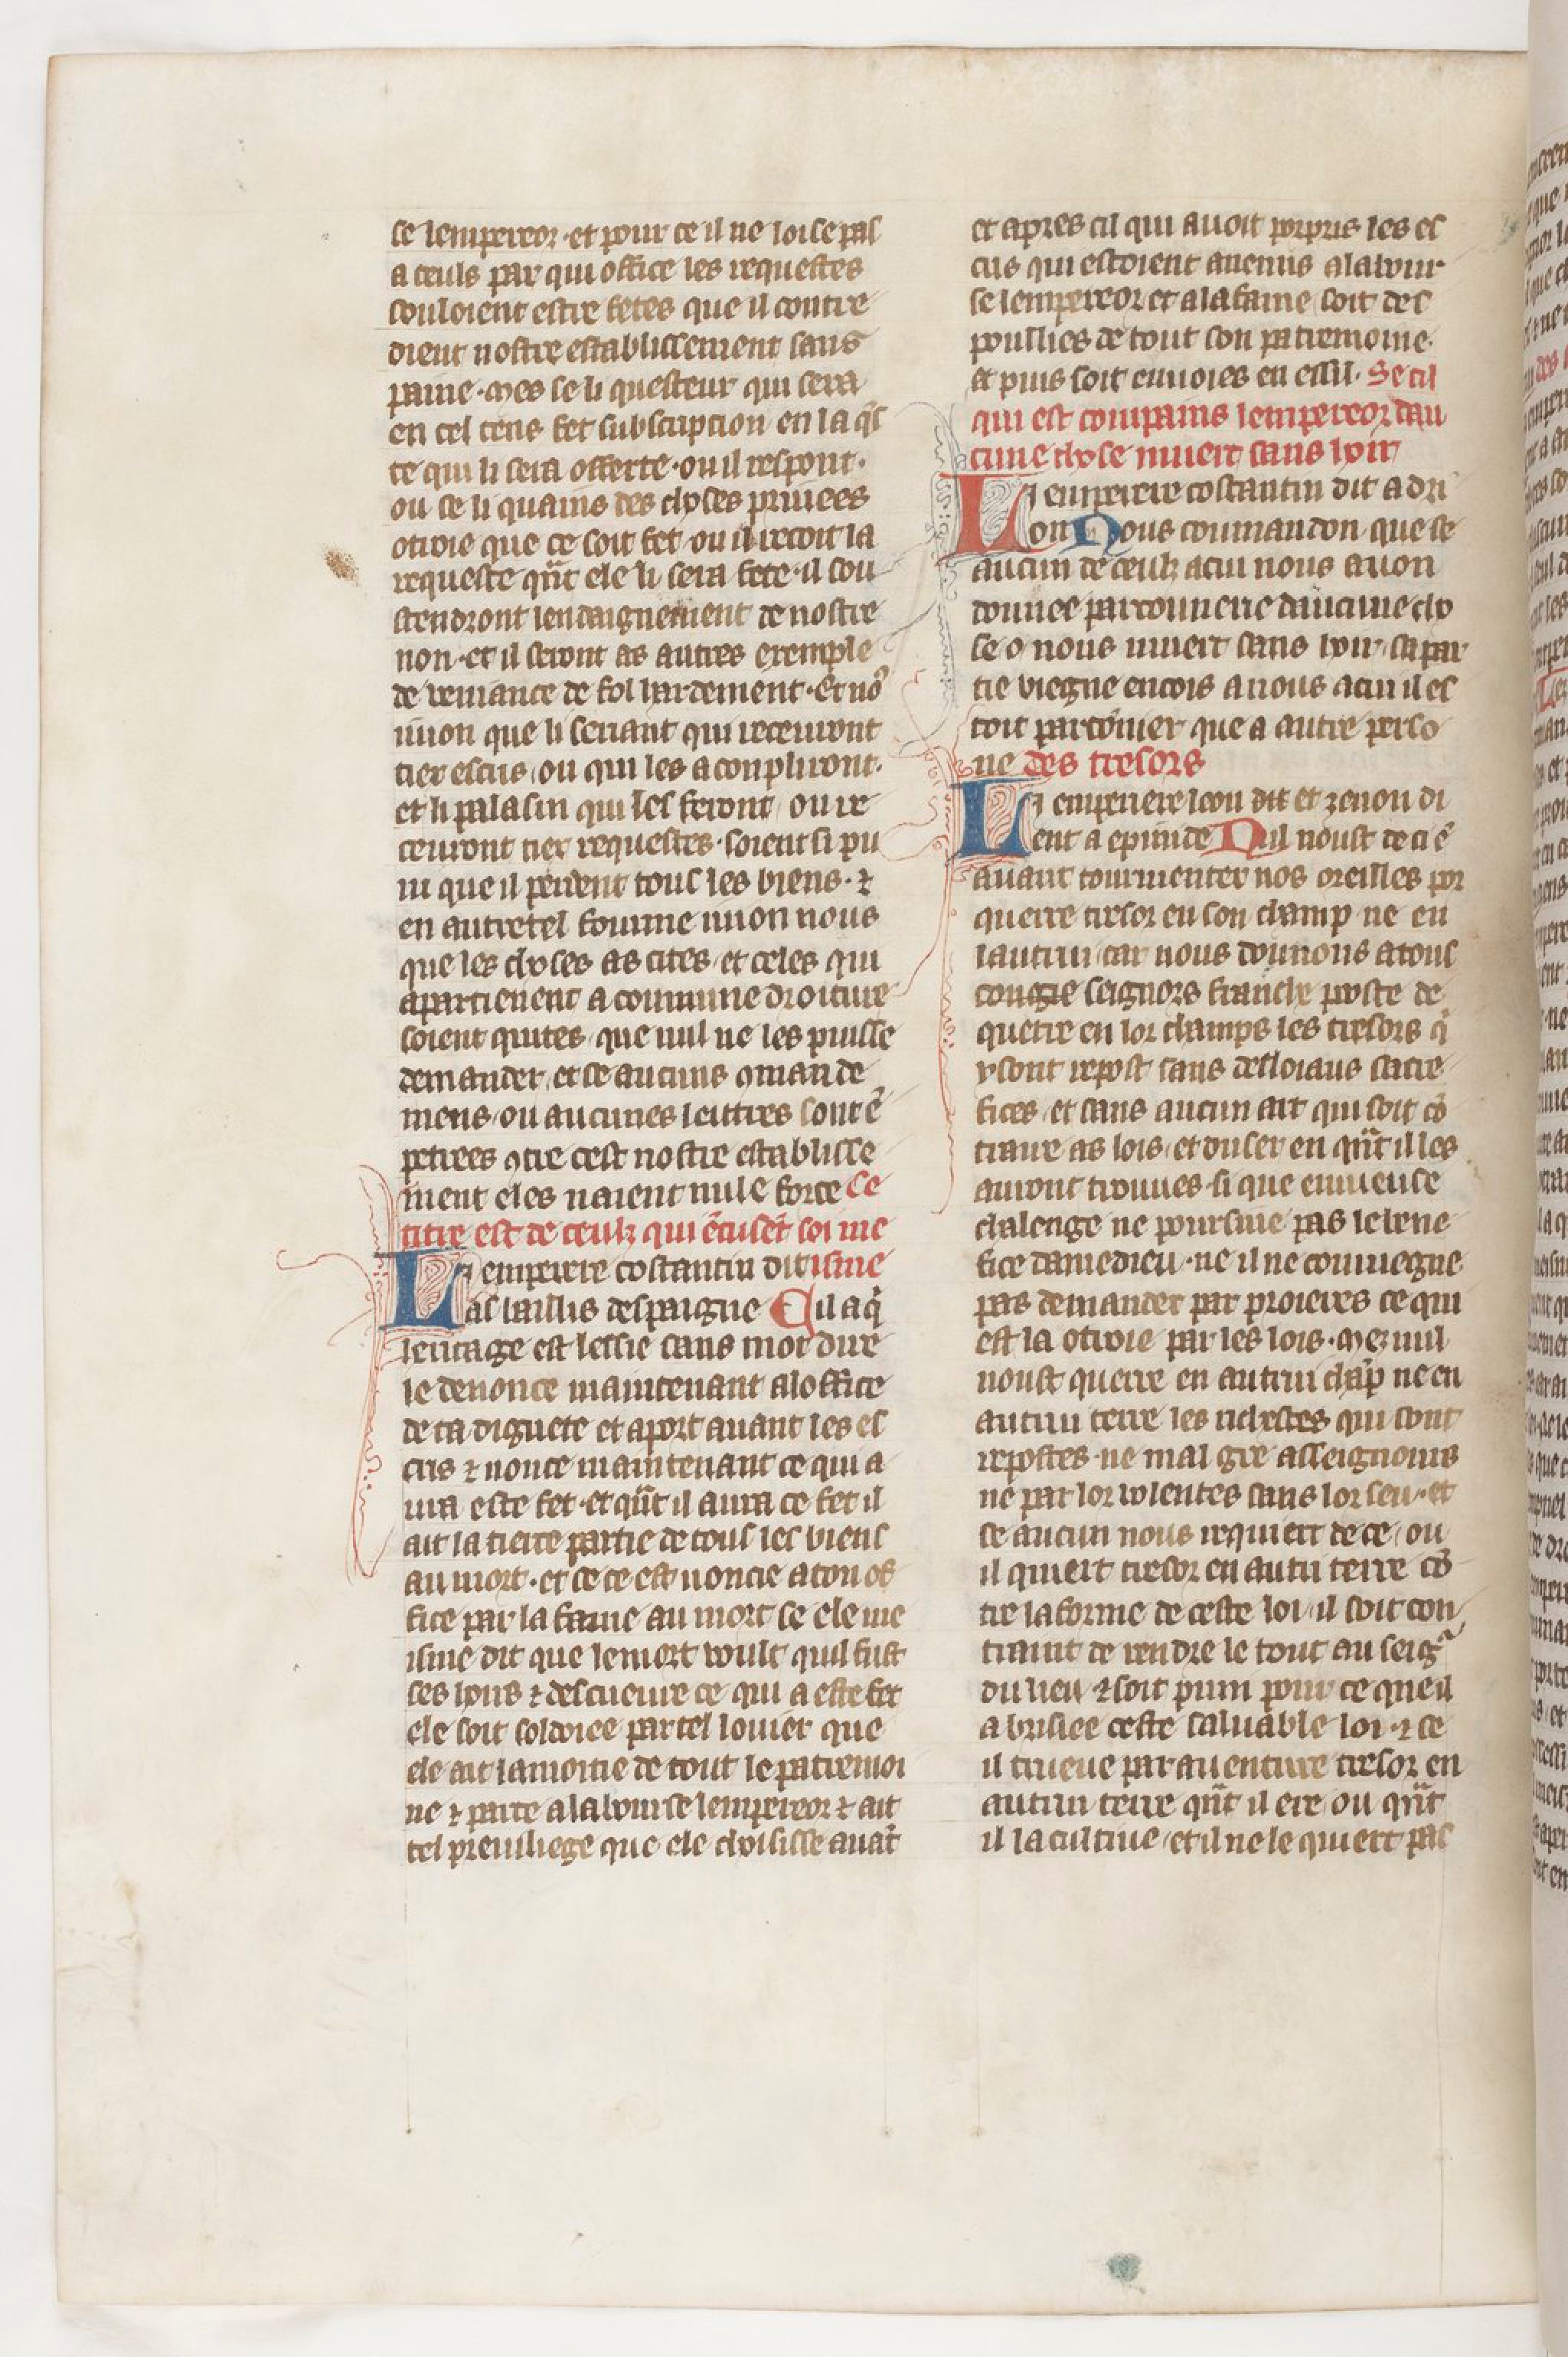 se lempereor · et pour ce il ne loise pas
a ceuls par qui office les requestes
souloient estre fetes que il contre
dient nostre establissement sans
paine · mes se li questeur qui sera
en cel tens fet subscription en la q̃s
te qui li sera offerte · ou il respont ·
ou se li quains des choses priuees
otroie que ce soit fet ou il recoit la
requeste q̃nt ele li sera fete · il sou
stendront lendaignement de nostre
non · et il seront as autres exemple
de veniance de fol hardement · Et no9
uuon que li seriant qui receuront
tier escris ou qui les aconpliront ·
et li palasin qui les feront ou re
ceuront tier requestes · soient si pu
ni que il perdent tous les biens · ⁊
en autretel fourme uuon nous
que les choses as cites et celes qui
apartienent a commune droiture
soient quites que nul ne les puisse
demander et se aucuns ꝯmande
mens ou aucunes lettres sont ẽ
petrees ꝯtre cest nostre establisse
ment eles naient nule force Ce
titre est de ceulz qui ẽcusẽt soi me
Li emperere costantin dit isme
as baillis despaigne Cil a q̃
leritage est lessie sans mot dire
le denonce maintenant aloffice
de ta dignete et aport auant les es
cris ⁊ nonce maintenant ce qui a
ura este fet · et q̃nt il aura ce fet il
ait la tierce partie de tous les biens
au mort · et se ce est noncie a ton of
fice par la fame au mort se ele me
isme dit que le mort voult quil fust
ses hoirs ⁊ descueure ce qui a este fet
ele soit soldoiee par tel louier que
ele ait la moitie de tout le patremoi
ne ⁊ parte a la bourse lempereor ⁊ ait
tel preuiliege que ele choisisse auãt
et apres cil qui auoit porpris les es
cris qui estoient auenus a la bour
se lempereor et a la fame soit des
poullies de tout son patremoine ·
et puis soit enuoies en essil · Se cil
qui est compains lempereor dau
cune chose muert sans hoir
Li emperere costantin dit a dri
lon Nous commandon que se
aucun de ceulz a cui nous auon
donnee parconnerie daucune cho
se o nous muert sans hoir sa par
tie viegne encois a nous a cui il es
toit parcõnier que a autre perso
ne des tresors
Li emperiere leon dit et zenon di
ent a epinide Nil noust de ci ẽ
auant tourmenter nos oreilles por
querre tresor en son champ ne en
lautrui car nous donnons a tous
congie seignors franche poste de
querre en lor champs les tresors q̃
y sont repost sans desloiaus sacre
fices et sans aucun art qui soit cõ
traire as lois et duser en q̃nt il les
auront trouues · si que enuieuse
chalenge ne poursiue pas le bene
fice damedieu · ne il ne couuiegne
pas demander par proieres ce qui
est ia otroie par les lois · Mez nul
noust querre en autrui chãp ne en
autrui terre les richestes qui sont
repostes · ne mal gre asseignours
ne par lor volentes sans lor seu · et
se aucun nous requiert de ce ou
il quiert tresor en autri terre cõ
tre la forme de ceste loi il soit con
traint de rendre le tout au seigr
du lieu ⁊ soit puni pour ce que il
a brisiee ceste saluable loi · ⁊ se
il trueue par auenture tresor en
autrui terre q̃nt il ere ou q̃nt
il la cultiue et il ne le quiert pas